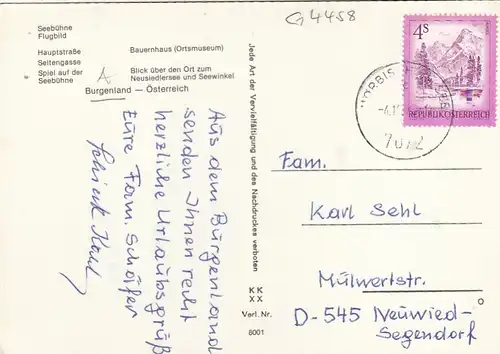 G4458
Seebühne
Flugbild
Hauptstraße
Seitengasse
Bauernhaus (Ortsmuseum)
Spiel auf der
Seebühne
Blick über den Ort zum
Neusiedlersee und Seewinkel
Burgenland — Österreich
Aus dem Burgenland
senden Ihnen recht
herzliche Urlaubsgrüß
Eure Fam. Schäfer
Jede Art der Vervielfältigung und des Nachdruckes verboten
KK
XX
Verl. Nr.
8001
4S
REPUBLIK ÖSTERREICH
MÖRBISCH
7072
Fam.
Karl Sehl
Mülwertstr.
D-545 Neuwied-
Segendorf